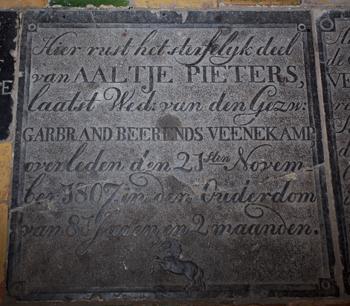 Hier rust het sterfelyk deel
van AALTJE PIETERS,
laatst Wed: van den Gezw:
GARBRAND BEERENDS VEENEKAMP
overleden den 21sten Novem-
ber 1807. in den Ouderdom
van 87 Jaren en 2 maanden.